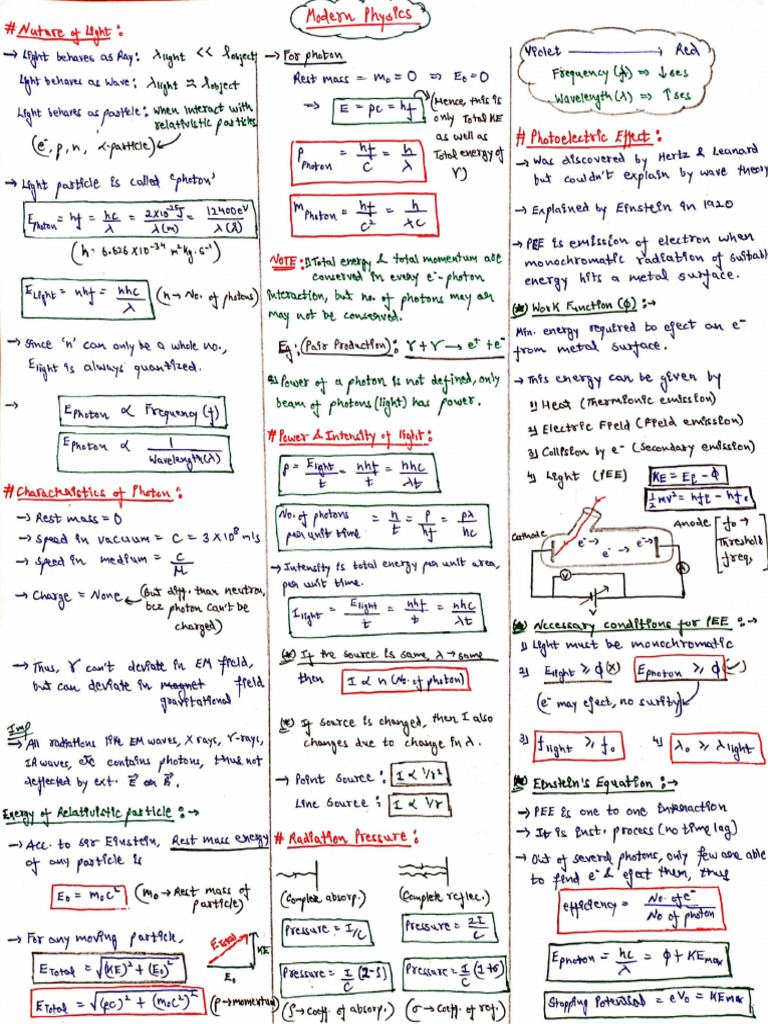 Modern Physics
# Nature of Light:
→ Light behaves as Ray: λlight << λobject
Light behaves as Wave: λlight ≈ λobject
Light behaves as particle: when interact with
relativistic particles
(e⁻, p, n, α-particle)
→ Light particle is called 'photon'
Ephoton = hf = hc/λ = 2×10⁻²⁵J/λ(m) = 12400eV/λ(Å)
(h = 6.626×10⁻³⁴ m²kg.s⁻¹)
ELight = nhf = nhc/λ (n → No. of photons)
→ Since 'n' can only be a whole no.,
Elight is always quantized.
→ EPhoton ∝ Frequency(f)
EPhoton ∝ 1/Wavelength(λ)
# Characteristics of Photon:
→ Rest mass = 0
→ Speed in vacuum = C = 3×10⁸ m/s
→ Speed in medium = C/μ
→ Charge = None (But diff. than neutron,
bcz photon can't be
charged)
→ Thus, γ can't deviate in EM field,
but can deviate in magnet field
gravitational
Imp
→ All radiations like EM waves, X rays, γ-rays,
IR waves, etc contains photons, thus not
deflected by ext. E or B.
Energy of Relativistic particle: →
→ Acc. to sir Einstein, Rest mass energy
of any particle is
E₀ = m₀c² (m₀ → Rest mass of
particle)
→ For any moving particle,
ETotal = √(KE)² + (E₀)²
ETotal = √(pc)² + (m₀c²)² (p → momentum)
ETotal
KE
E₀
→ For photon
Rest mass = m₀ = 0 ⇒ E₀ = 0
⇒ E = pc = hf (Hence, this is
only Total KE
as well as
Total energy of
γ)
PPhoton = hf/c = h/λ
mPhoton = hf/c² = h/λc
NOTE: 1) Total energy & total momentum are
conserved in every e⁻-photon
interaction, but no. of photons may or
may not be conserved.
Eg: (Pair Production): γ + γ → e⁺ + e⁻
2) Power of a photon is not defined, only
beam of photons (light) has power.
# Power & Intensity of light:
P = Elight/t = nhf/t = nhc/λt
No. of photons
per unit time = n/t = P/hf = Pλ/hc
→ Intensity is total energy per unit area,
per unit time.
Ilight = Elight/t = nhf/t = nhc/λt
(*) If the source is same, λ → same
then I ∝ n (No. of photon)
(*) If source is changed, then I also
changes due to change in λ.
→ Point Source: I ∝ 1/r²
Line Source: I ∝ 1/r
# Radiation Pressure:
(Complete absorp.) (Complete reflec.)
Pressure = I/C Pressure = 2I/C
Pressure = I/C (2-S) Pressure = I/C (1+σ)
(S → Coeff. of absorp.) (σ → Coeff. of ref.)
Violet → Red
Frequency (f) ⇒ ↓ses
Wavelength (λ) ⇒ ↑ses
# Photoelectric Effect:
→ Was discovered by Hertz & Leanard
but couldn't explain by wave theory
→ Explained by Einstein in 1920
→ PEE is emission of electron when
monochromatic radiation of suitabl
energy hits a metal surface.
(*) Work Function (Φ): →
Min. energy required to eject an e⁻
from metal surface.
→ This energy can be given by
1) Heat (Thermionic emission)
2) Electric Field (Field emission)
3) Collision by e⁻ (Secondary emission)
4) Light (PEE) KE = EL - Φ
1/2 mv² = hfL - hf₀
Cathode
Anode
e⁻→ e⁻→ e⁻→
V
A
V
[f₀ →
Threshold
freq.]
(*) Necessary conditions for PEE: →
1) Light must be monochromatic
2) Elight ≥ Φ (×) Ephoton ≥ Φ (✓)
(e⁻ may eject, no surity)
3) flight ≥ f₀ 4) λ₀ ≥ λlight
(*) Einstein's Equation: →
→ PEE is one to one interaction
→ It is inst. process (no time lag)
→ Out of several photons, only few are able
to find e⁻ & eject them, thus
efficiency = No. of e⁻/No of photon
Ephoton = hc/λ = Φ + KEmax
Stopping Potential = eV₀ = KEmax